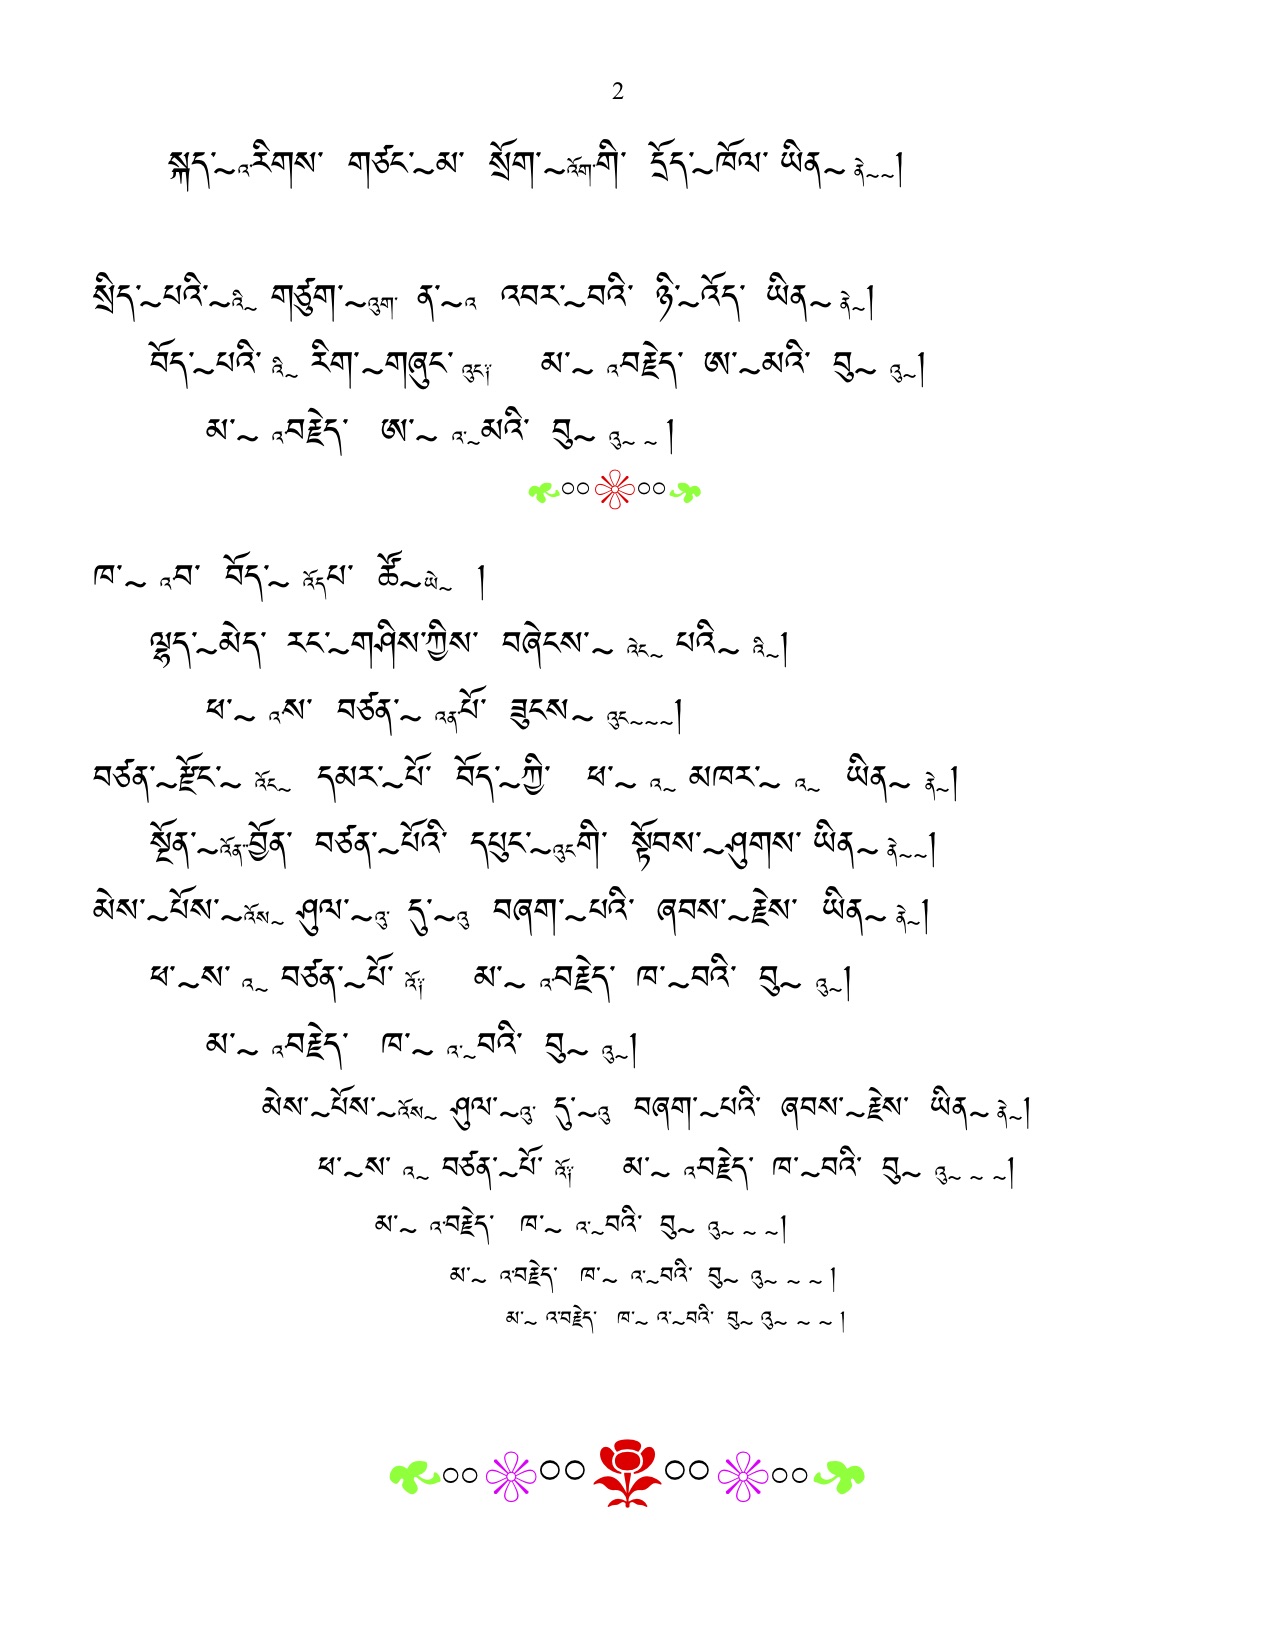 2
སྐད་~འ་རིགས་ གཙང་~མ་ སྲོག་~འོག་གི་ དྲོད་~ཁོལ་ ཡིན~ ནེ~~།
སྲིད་~པའི་~འི~ གཙུག་~འུག་ ན་~འ འབར་~བའི་ ཉི་~འོད་ ཡིན~ ནེ~།
བོད་~པའི་ འི~ རིག་~གཞུང་ འུང༌། མ་~ འབརྗེད་ ཨ་~མའི་ བུ~ འུ~།
མ་~ འབརྗེད་ ཨ་~ འ་~མའི་ བུ~ འུ~ ~ །
ཁ་~ འབ་ བོད་~ འོདཔ་ ཚོ~ཡེ~ །
ལྷད་~མེད་ རང་~གཤིས་ཀྱིས་ བཞེངས་~ འེང~ པའི~ འི~།
ཕ་~ འས་ བཙན་~ འནཔོ་ ཟུངས~ འུང~~~།
བཙན་~རྫོང་~ འོང~ དམར་~པོ་ བོད་~ཀྱི་ ཕ་~ འ~ མཁར་~ འ~ ཡིན~ ནེ~།
སྔོན་~འོན་བྱོན་ བཙན་~པོའི་ དཔུང་~འུངགི་ སྟོབས་~ཤུགས་ ཡིན~ ནེ~~།
མེས་~པོས་~འོས~ ཤུལ་~འུ་ དུ་~འུ བཞག་~པའི་ ཞབས་~རྗེས་ ཡིན~ ནེ~།
ཕ་~ས་ འ~ བཙན་~པོ་ འོ༌། མ་~ འབརྗེད་ ཁ་~བའི་ བུ~ འུ~།
མ་~ འབརྗེད་ ཁ་~ འ་~བའི་ བུ~ འུ~།
མེས་~པོས་~འོས~ ཤུལ་~འུ་ དུ་~འུ བཞག་~པའི་ ཞབས་~རྗེས་ ཡིན~ ནེ~།
ཕ་~ས་ འ~ བཙན་~པོ་ འོ༌། མ་~ འབརྗེད་ ཁ་~བའི་ བུ~ འུ~ ~ ~།
མ་~ འ་བརྗེད་ ཁ་~ འ་~བའི་ བུ~ འུ~ ~ ~།
མ་~ འ་བརྗེད་ ཁ་~ འ་~བའི་ བུ~ འུ~ ~ ~ །
མ་~ འ་བརྗེད་ ཁ་~ འ་~བའི་ བུ~ འུ~ ~ ~ །